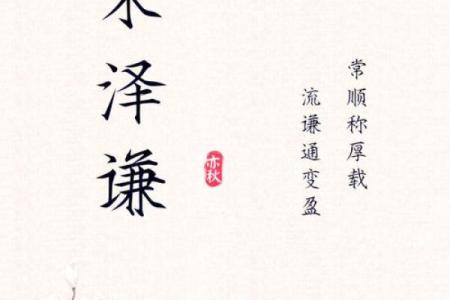 泽谦
常顺称厚载
流谦通变盈
亦秋